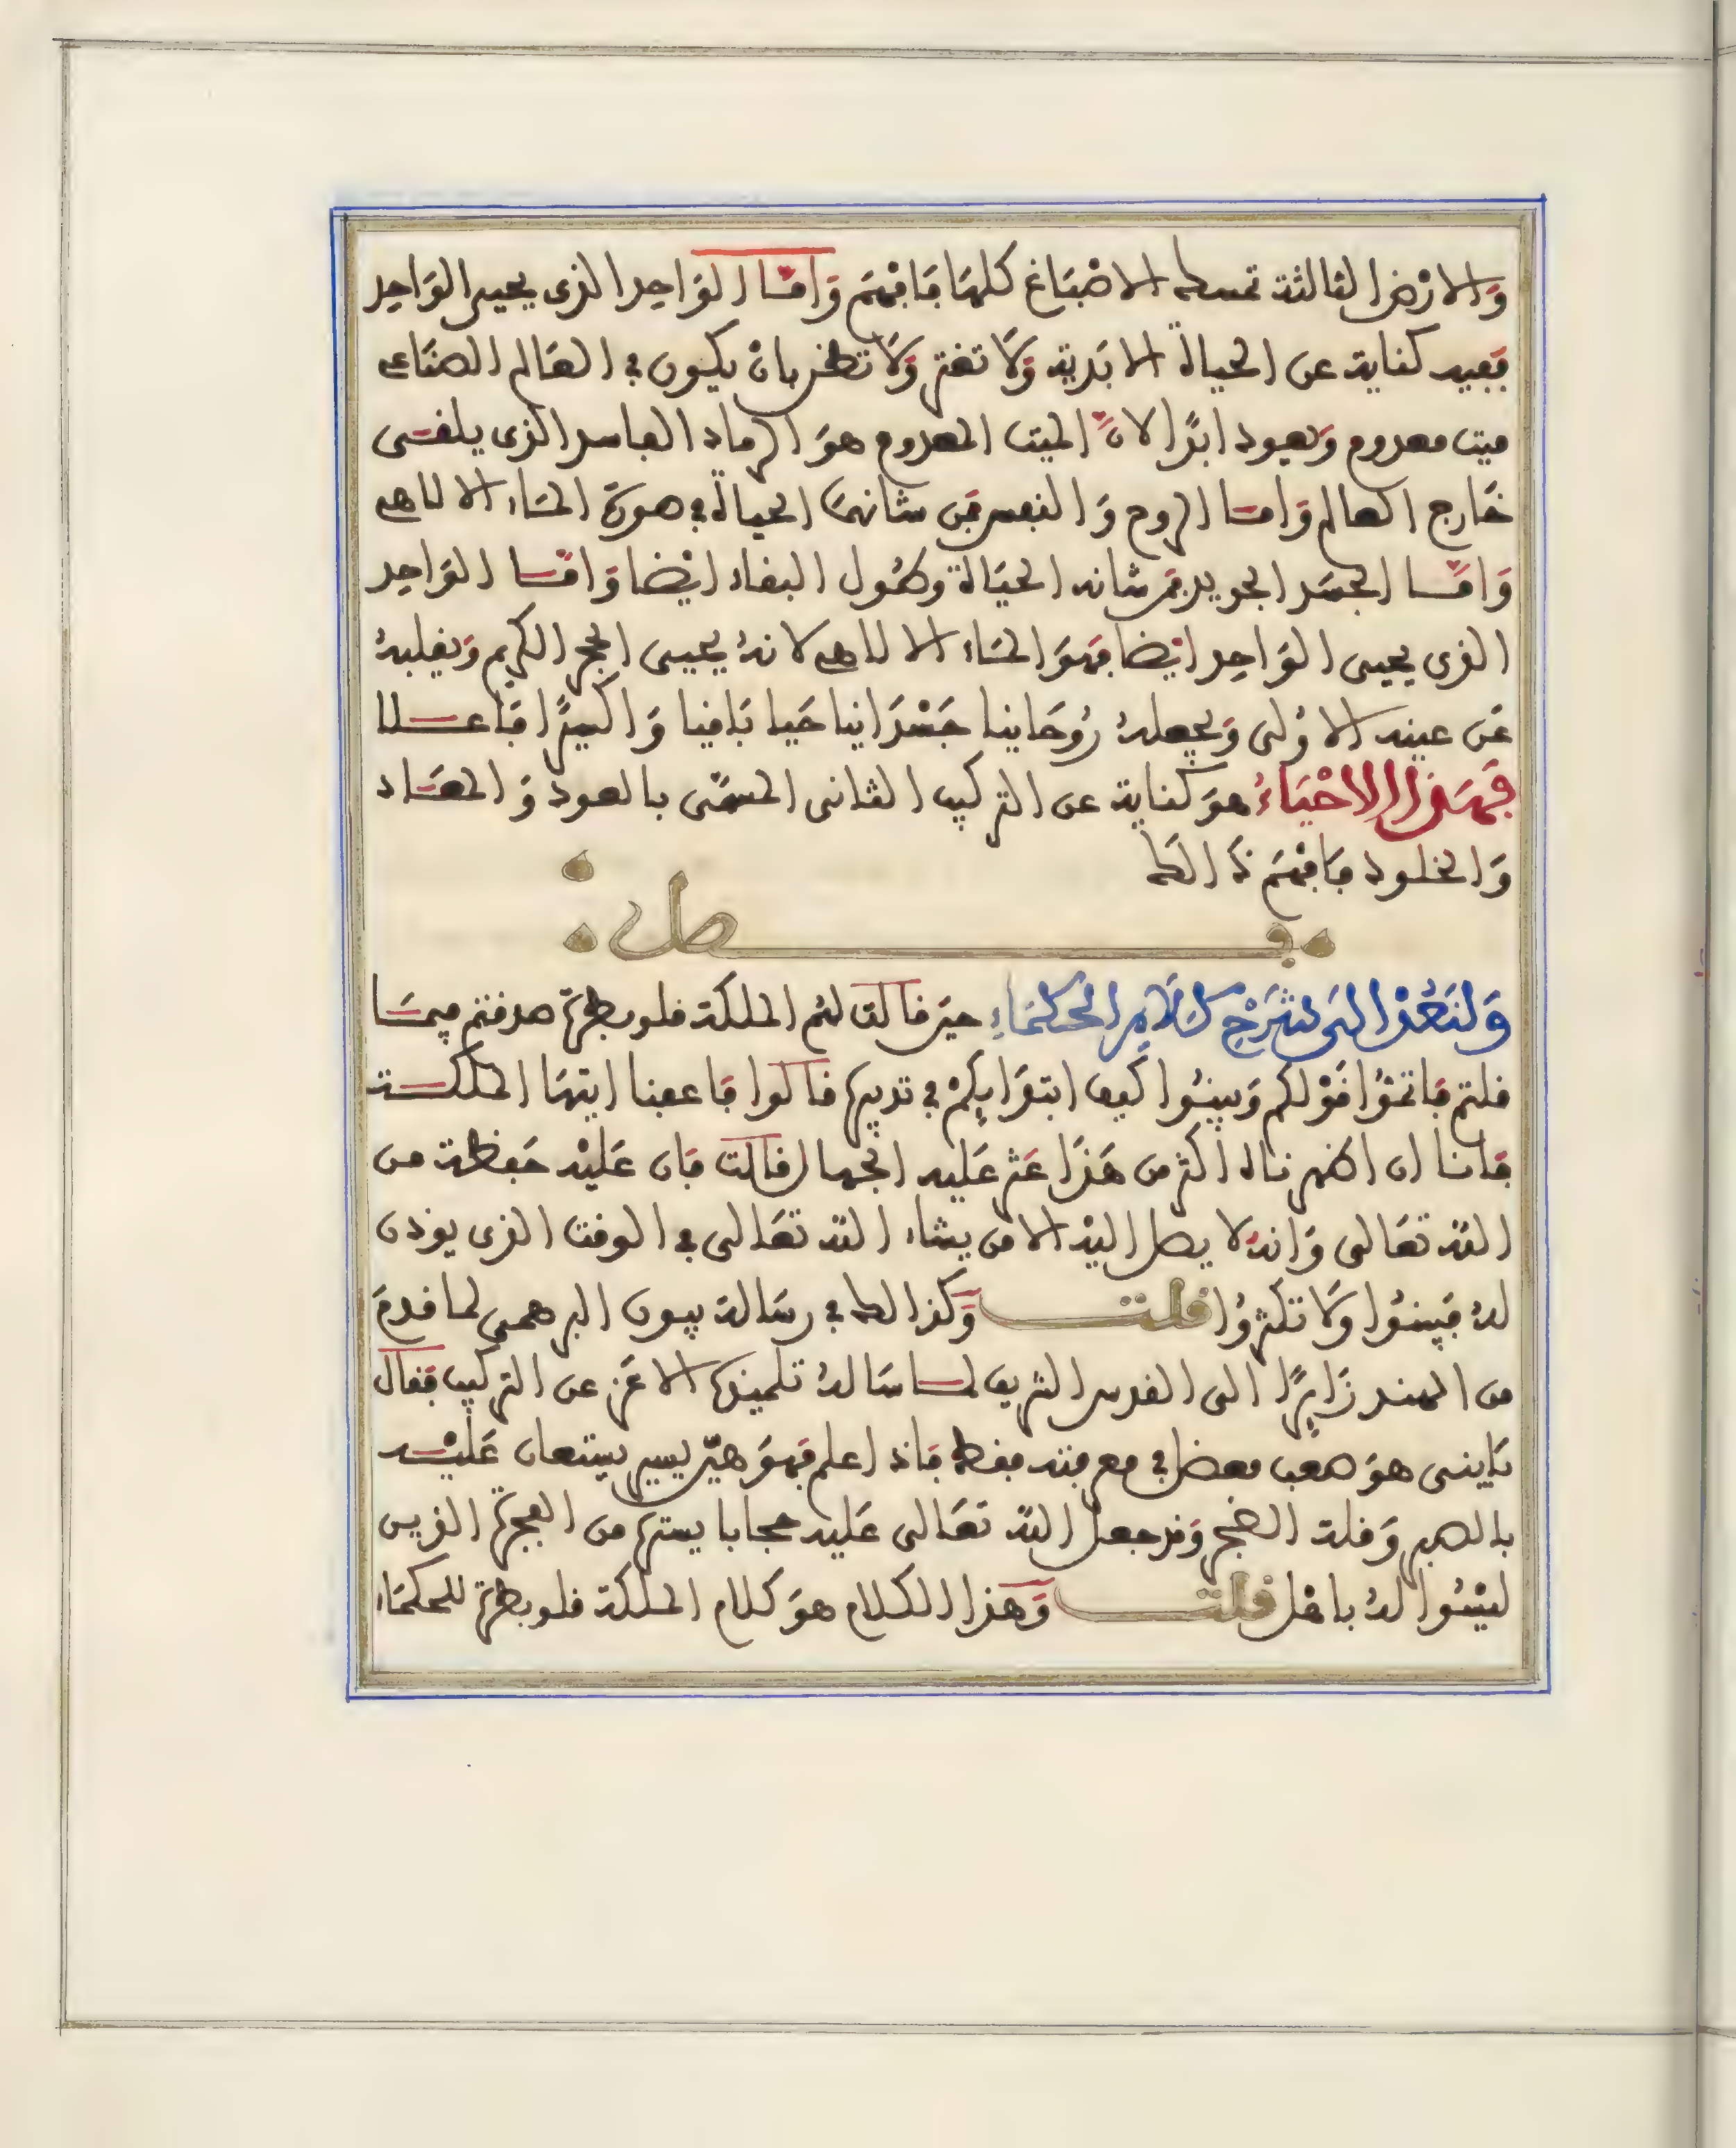 وَالارْض الثالثة تمسك الاصْبَاغ كلهَا فَافهَم وَامَّا الوَاحِد الذى يحيى الوَاحِد
فهيه كناية عن الحياة الابَدية وَلَا تغتر وَلَا تظن بان يكون فى العَالم الصنَاعى
ميت معدوم وَيعود ابدًا لانَّ الميت المعدوم هوَ الرماد الفاسد الذى يلقَى
خَارج العالم وَامَّا الروح وَالنفس فمَن شانهمَا الحياة فى صورَة المَاء الالاهى
وَامَّا الجسَد الجديد فمن شانه الحيَاة وَطُول البقاء ايْضا وَامَّا الوَاحِد
الذى يحيى الوَاحِد ايْضا فهوَ المَاء الالاهى لانهُ يحيى الحجر الكريم وَيقلبهُ
عَن عينه الاوْلى وَيجعلهُ رُوحَاينا جَسْدَانيا حَيا بَاقيا وَاكسيرًا فَاعلا
فهَذا الاحْيَاءُ هوَ كناية عن التركيب الثانى المسمَّى بالعود وَالمعَاد
وَالخلود فَافهَم ذَالك
فصل
وَلنَعُدْ الىَ شَرْحِ كَلَامِ الحكمَاءِ حينَ قالت لهُم الملكة قلوبطرة صدقتم فيمَا
قلتم فَاتمّوُا قوْلكم وَبينُوا كيف ابتدَايكمْ فى تدبيرها قالوا فَاعفنا ايتهَا الملكة
فَاننا ان اظهرناه اكثر من هَذَا عَثر عَليه الجهال قالت فَان عَليْه حَفظة من
الله تعَالى وَانهُ لا يصل اليْه الا من يشاء الله تعَالى فى الوقت الذى يوذن
لهُ فبينوُا وَلَا تكثروُا قلت وَكذالك فى رسَالة بيون البرهمى لما قدمَ
من الهند زَايرًا الى القدس الشريف لما سَالهُ تلميذه الاعَز عن التركيب فقَال
يَابنى هوَ صَعب معضل فى معرفته فقط فَاذا علم فهوَ هيّن يسير يستعان عَليْه
بالصبر وَقلة الضجر وَقد جعل الله تعَالى عَليه حجابا يستره من الفجرَة الذين
ليْسُوا لهُ باهْل قلت وَهَذا الكلام هوَ كلام الملكة قلوبطرة للحكمَاء